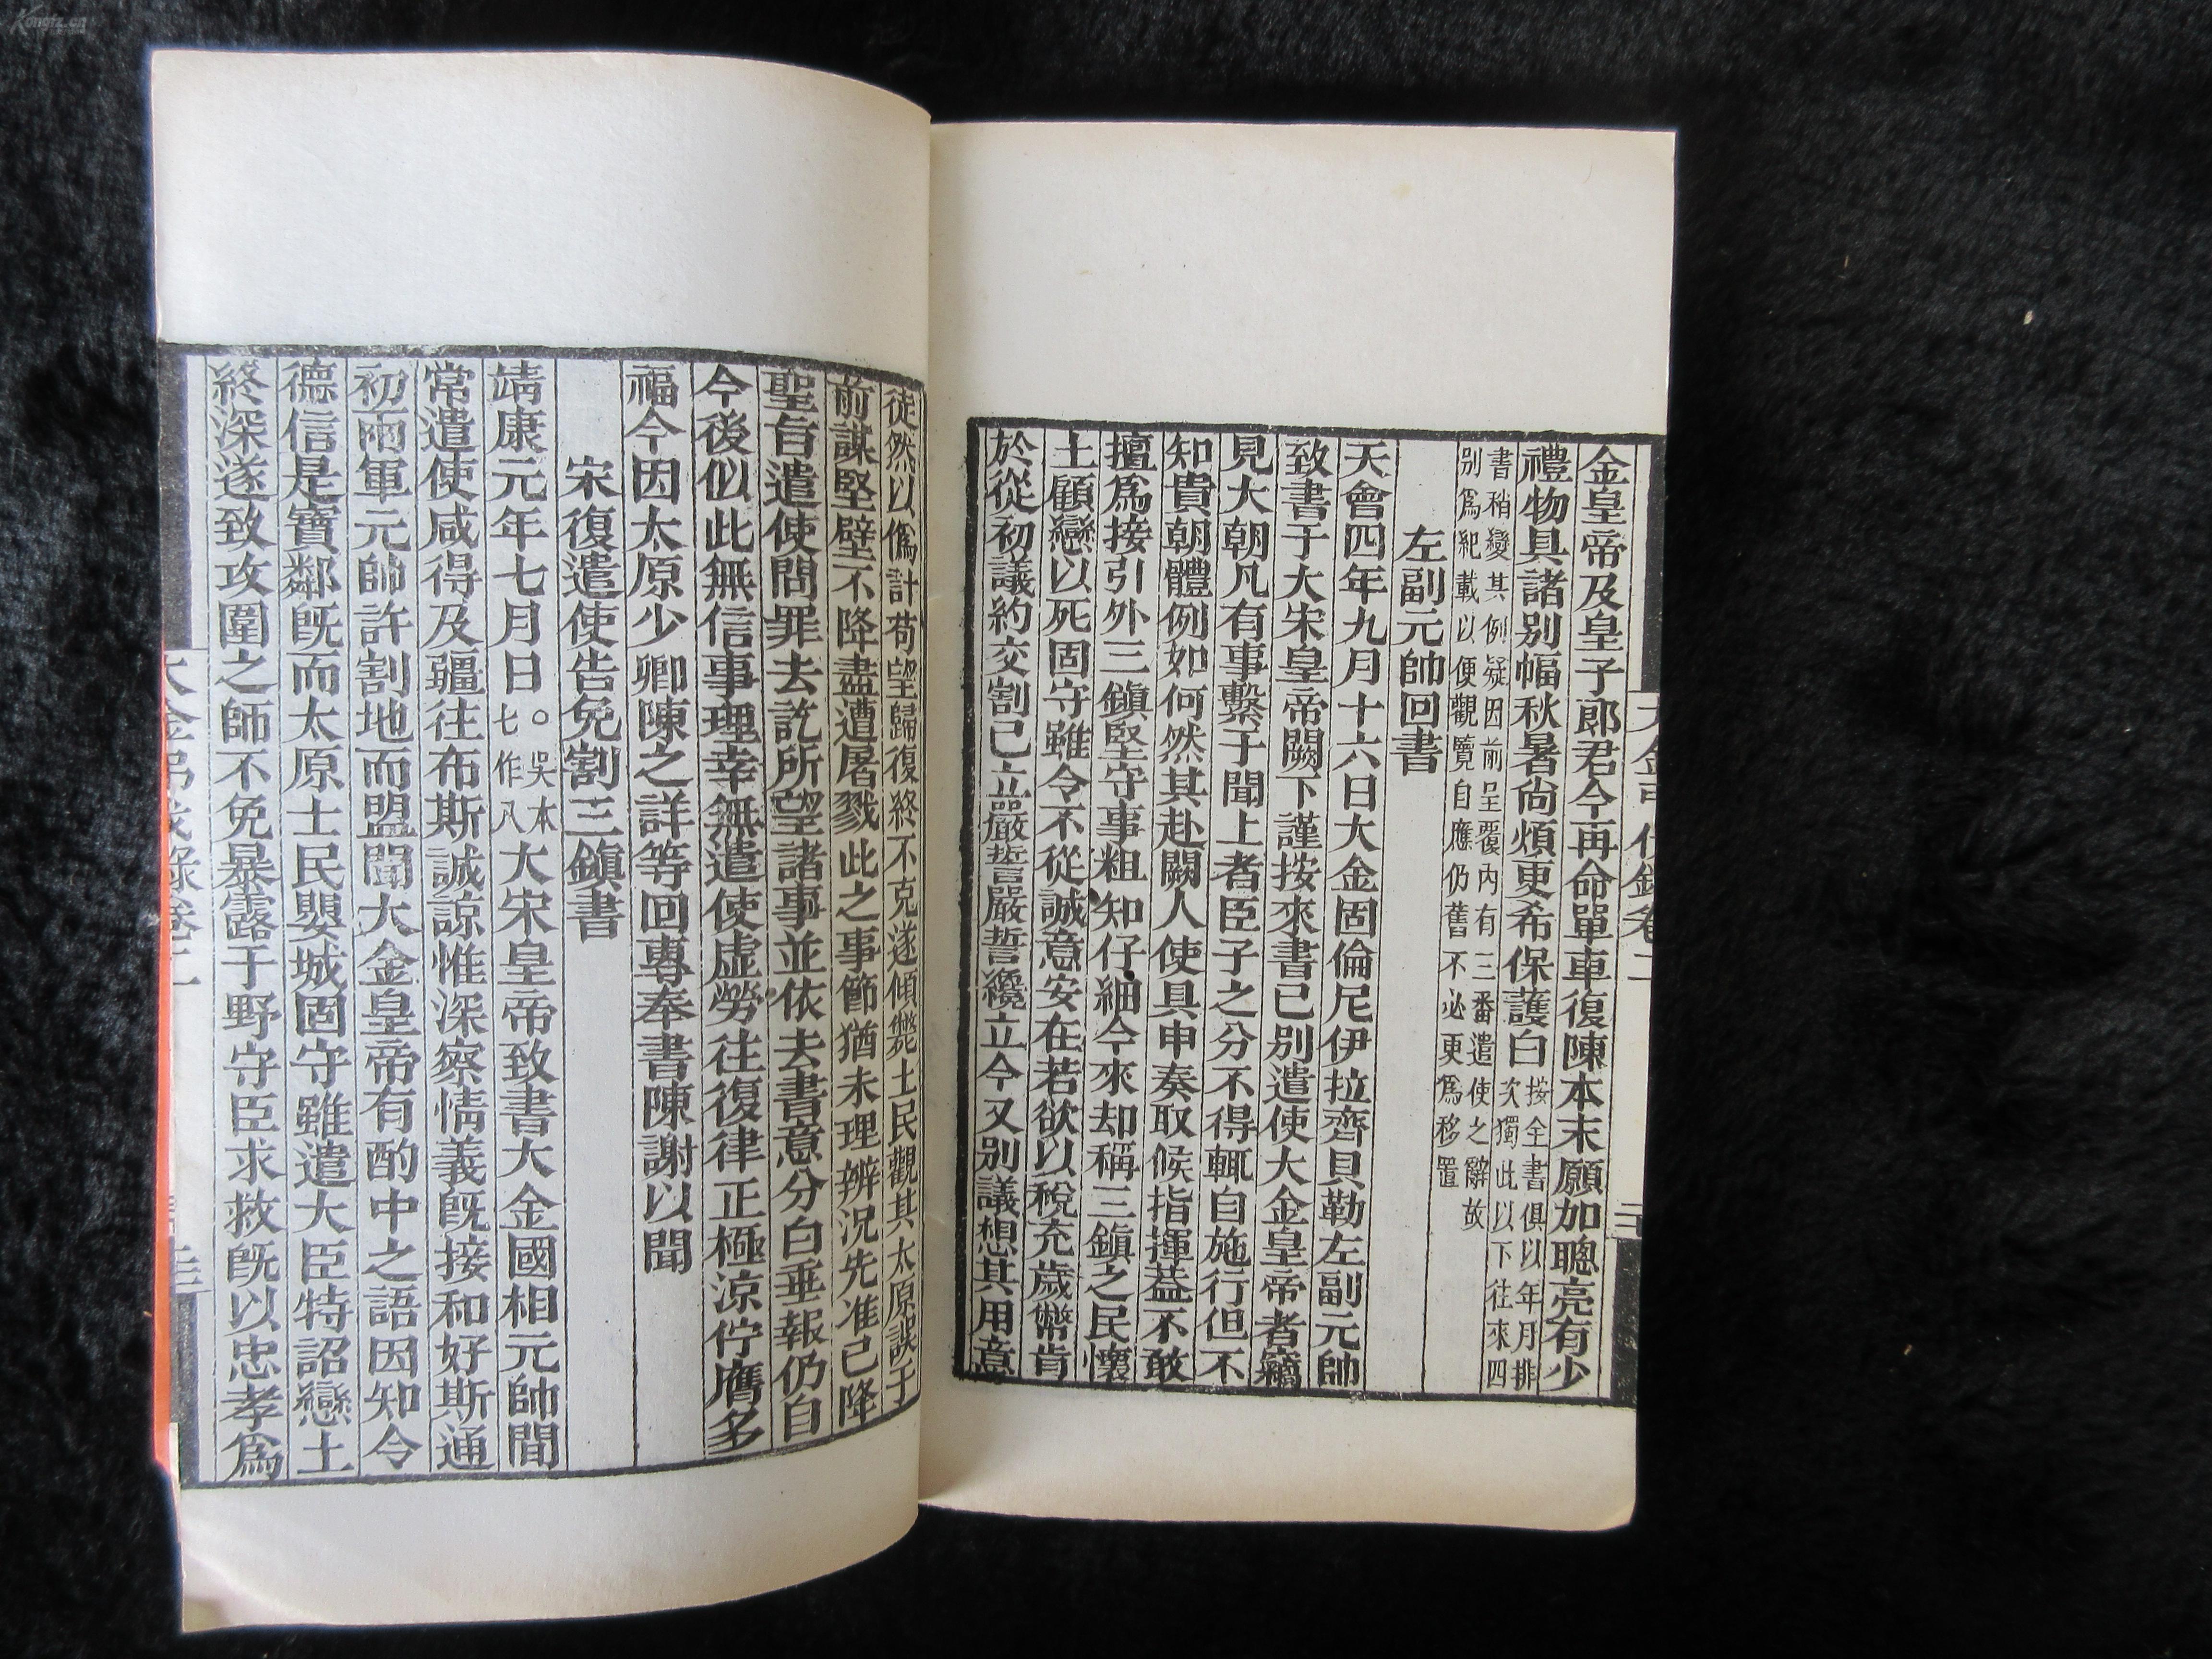 金皇帝及皇子郎君今再命單車復陳本末願加聰亮有少
禮物具諸別幅秋暑尚煩更希保護白按全書俱以年月排次獨此以下往來四
書稍變其例疑因前呈覆內有三番遣使之辭故別爲紀載以便觀覽自應仍舊不必更爲移置
左副元帥回書
天會四年九月十六日大金固倫尼伊拉齊貝勒左副元帥
致書于大宋皇帝闕下謹按來書已別遣使大金皇帝者竊
見大朝凡有事繫于聞上者臣子之分不得輒自施行但不
知貴朝體例如何然其赴闕人使具申奏取候指揮益不敢
擅爲接引外三鎭堅守事粗知仔細今來却稱三鎭之民懷
土顧戀以死固守雖令不從誠意安在若欲以稅充歲幣肯
於從初議約交割已立嚴誓嚴誓纔立今又別議想其用意
徒然以僞計苟望歸復終不克遂傾斃士民觀其太原誤于
前謀堅壁不降盡遭屠戮此之事節猶未理辨況先准已降
聖旨遣使問罪去訖所望諸事並依去書意分白垂報仍自
今後似此無信事理幸無遣使虛勞往復律正極涼佇膺多
福今因太原少卿陳之詳等回專奉書陳謝以聞
宋復遣使告免割三鎭書
靖康元年七月日。吳本七作八大宋皇帝致書大金國相元帥間
常遣使咸得及疆往布斯誠諒惟深察情義旣接和好斯通
初兩軍元帥許割地而盟聞大金皇帝有酌中之語因知令
德信是寶鄰旣而太原士民嬰城固守雖遣大臣特詔戀土
終深遂致攻圍之師不免暴露于野守臣求救旣以忠孝爲
大金弔伐錄卷二
Kongfz.cn